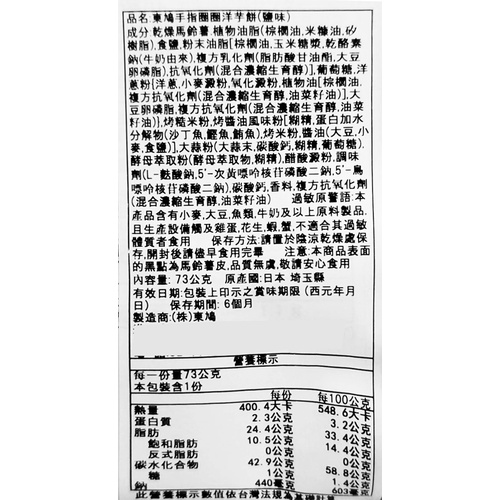 品名:東鳩手指圈圈洋芋餅(鹽味)
成分:乾燥馬鈴薯,植物油脂(棕櫚油,米糠油,矽
樹脂),食鹽,粉末油脂[棕櫚油,玉米糖漿,乾酪素
鈉(牛奶由來),複方乳化劑(脂肪酸甘油酯,大豆
卵磷脂),抗氧化劑(混合濃縮生育醇)],葡萄糖,洋
蔥粉[洋蔥,小麥澱粉,氧化澱粉,植物油[棕櫚油,
複方抗氧化劑(混合濃縮生育醇,油菜籽油)],大
豆卵磷脂,複方抗氧化劑(混合濃縮生育醇,油菜
籽油)},烤糙米粉,烤醬油風味粉[糊精,蛋白加水
分解物(沙丁魚,鰹魚,鮪魚),烤米粉,醬油(大豆,小
麥,食鹽)],大蒜粉(大蒜末,碳酸鈣,糊精,葡萄糖),
酵母萃取粉(酵母萃取物,糊精),醋酸澱粉,調味
劑(L-麩酸鈉,5'-次黃嘌呤核苷磷酸二鈉,5'-鳥
嘌呤核苷磷酸二鈉),碳酸鈣,香料,複方抗氧化劑
(混合濃縮生育醇,油菜籽油) 過敏原警語:本
產品含有小麥,大豆,魚類,牛奶及以上原料製品,
且生產設備觸及雞蛋,花生,蝦,蟹,不適合其過敏
體質者食用 保存方法:請置於陰涼乾燥處保
存,開封後請儘早食用完畢 注意:本商品表面
的黑點為馬鈴薯皮,品質無虞,敬請安心食用
內容量: 73公克 原產國:日本 埼玉縣
有效日期:包裝上印示之賞味期限 (西元年月
日) 保存期間: 6個月
製造商:(株)東鳩
營養標示
每一份量73公克
本包裝含1份
每份 每100公克
熱量 400.4大卡 548.6大卡
蛋白質 2.3公克 3.2公克
脂肪 24.4公克 33.4公克
飽和脂肪 10.5公克 14.4公克
反式脂肪 0公克 0公克
碳水化合物 42.9公克 58.8公克
糖 1公克 1.4公克
鈉 440毫克 603毫克
此營養標示數值依台灣法規為基準計算